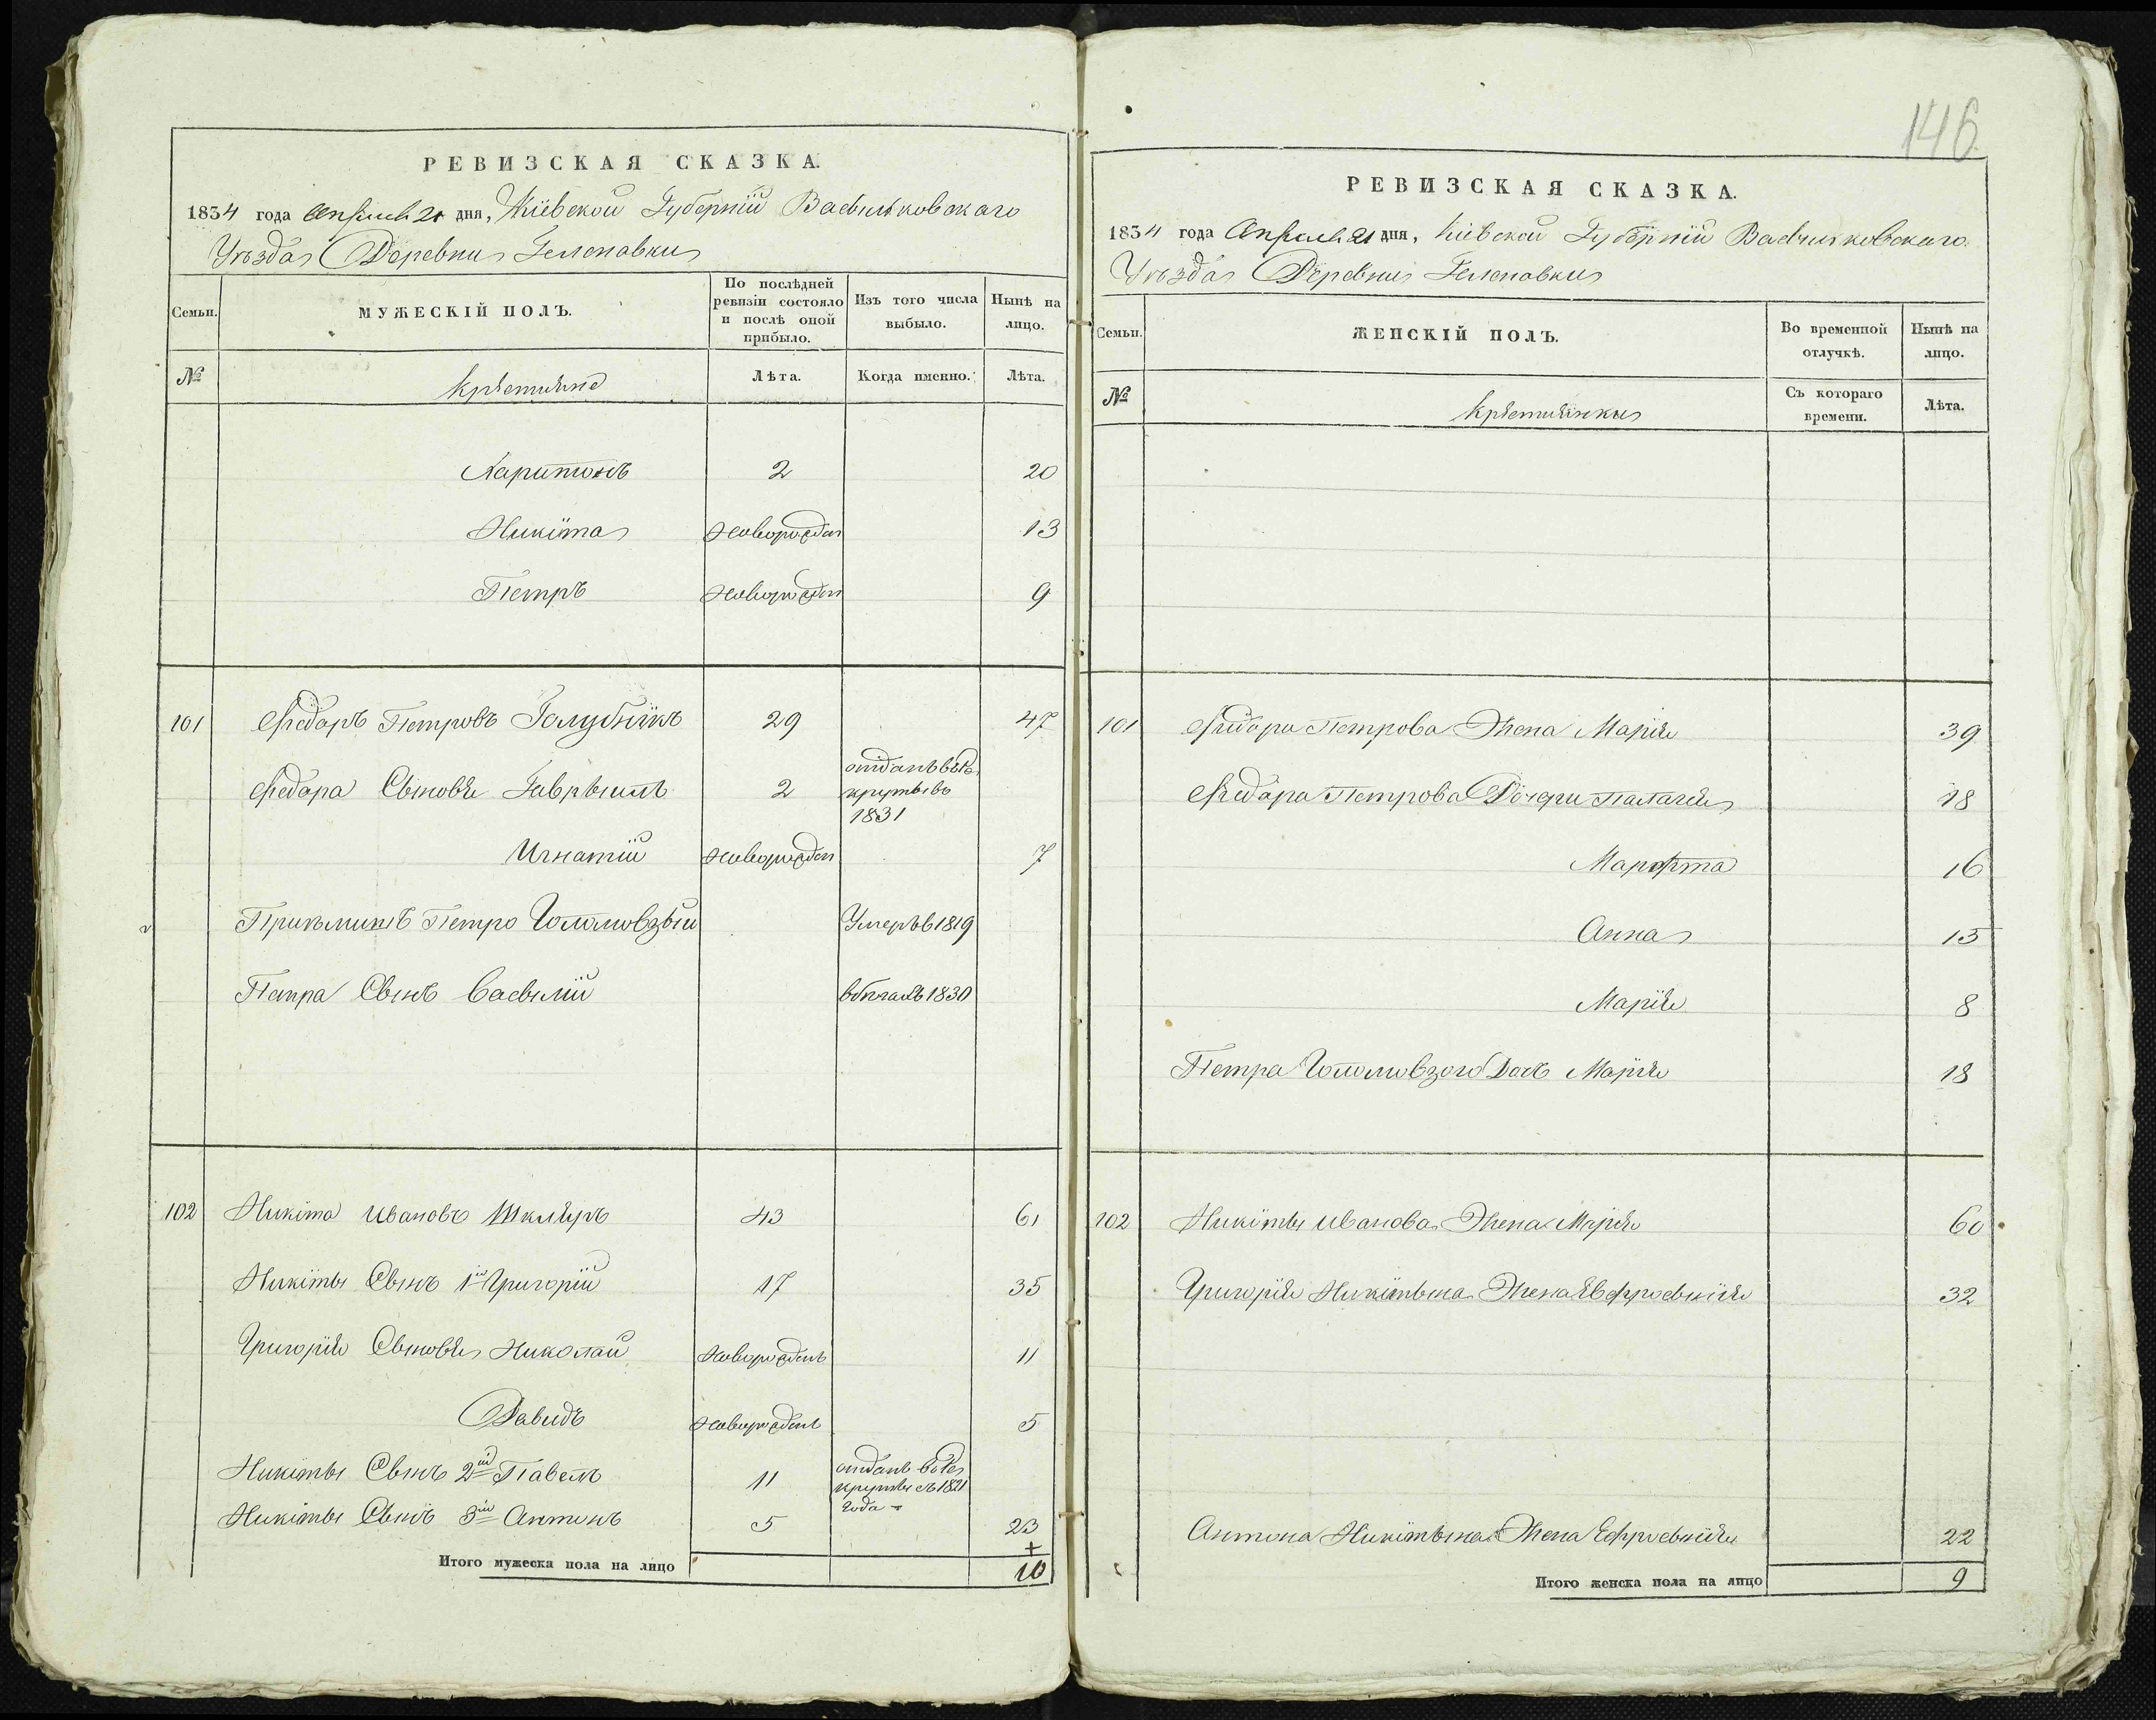 146
РЕВИЗСКАЯ СКАЗКА.
1834 года Апреля 21 дня, Кіевской Губерніи Васильковскаго
Уѣзда Деревни Гелепавки
Семьи.
МУЖЕСКІЙ ПОЛЪ.
По послѣдней ревизіи состояло и послѣ оной прибыло.
Изъ того числа выбыло.
Нынѣ на лицо.
№
крестяне
Лѣта.
Когда именно.
Лѣта.
Харитонъ 2 20
Никита новорожден 13
Петръ новорожден 9
101 Федоръ Петровъ Голубникъ 29 47
Федора Сыновя Гаврыилъ 2 отданъ въ Рекруты въ 1831
Игнатій новорожден 7
Приъмишъ Петро Умеръ в 1819
Петра Сынъ Васылій 1830
102 Никита Ивановъ Шкляръ 43 61
Никиты Сынъ 1й Григорій 17 35
Григорія Сыновя Николай новорожденъ 11
Давидъ новорожденъ 5
Никиты Сынъ 2й Павелъ 11 отданъ въ Рекруты съ 1821 года
Никиты Сынъ 3й Антонъ 5 23
+
Итого мужеска пола на лицо 10
РЕВИЗСКАЯ СКАЗКА.
1834 года Апреля 21 дня, Кіевской Губерніи Васильковскаго
Уѣзда Деревни Гелепавки
Семьи.
ЖЕНСКІЙ ПОЛЪ.
Во временной отлучкѣ.
Нынѣ на лицо.
№
крестянки
Съ котораго времени.
Лѣта.
101 Федора Петрова Жена Марія 39
Федора Петрова Дочери Палагея 18
Марфта 16
Анна 13
Марія 8
Петра Дочь Марія 18
102 Никиты Иванова Жена Марія 60
Григорія Никитына Жена Евфросынія 32
Антона Никитына Жена Ефросынія 22
Итого женска пола на лицо 9